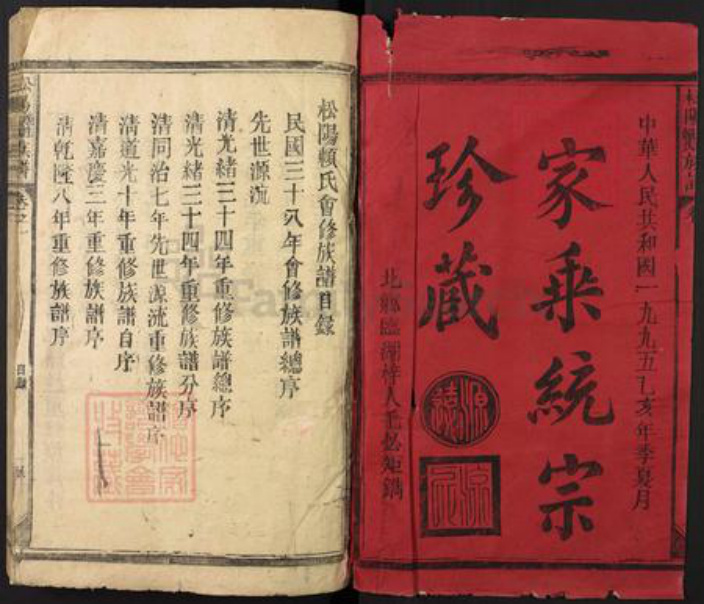 中華人民共和國一九九五乙亥年季夏月
家乘統宗
珍藏
松陽賴氏會修族譜目錄
民國三十八年會修族譜總序
先世源流
清光緒三十四年重修族譜總序
清光緒三十四年重修族譜分序
清同治七年先世源流重修族譜序
清道光十年重修族譜自序
清嘉慶三年重修族譜序
清乾隆八年重修族譜序
目錄